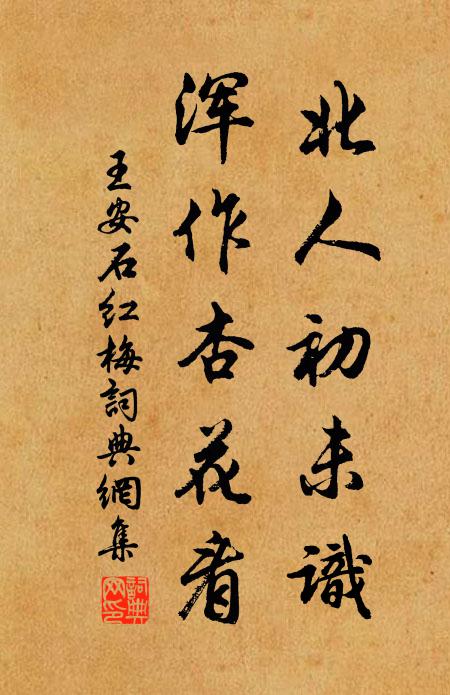 北人初未識
渾作杏花看
王安石红梅詞典網集
詞典網印